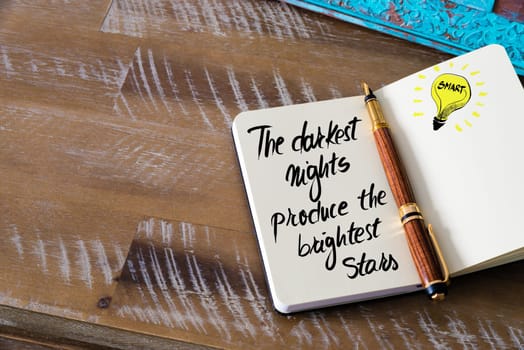 The darkest
nights
produce the
brightest
Stars
SMART